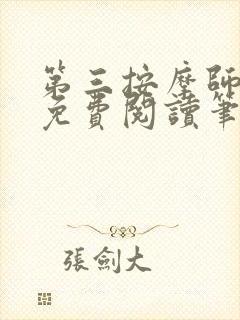 第三按摩師
免費閱讀筆
張劍大